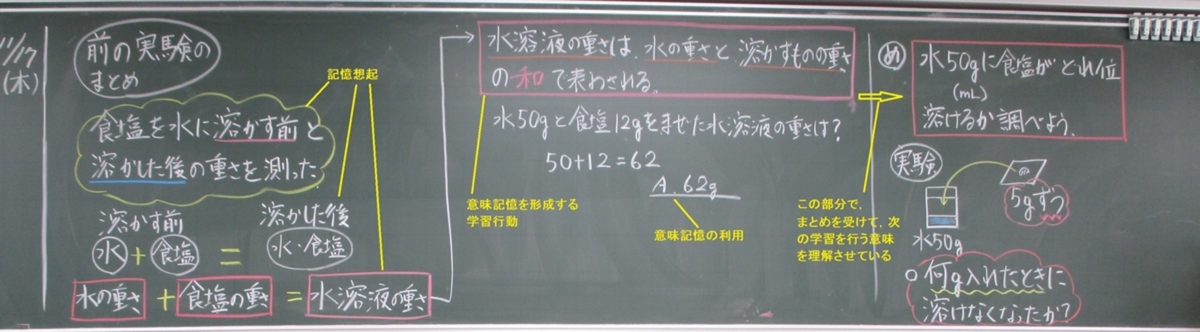 11/17
(木)
前の実験の
まとめ
記憶想起
食塩を水に溶かす前と
溶かした後の重さを測った
溶かす前
溶かした後
水 + 食塩 = 水・食塩
水の重さ + 食塩の重さ = 水溶液の重さ
水溶液の重さは、水の重さと、溶かすものの重さ
の和で表わされる。
水50gと食塩12gをまぜた水溶液の重さは?
50+12=62
A. 62g
意味記憶を形成する
学習行動
意味記憶の利用
この部分で,
まとめを受けて,次
の学習を行う意味
を理解させている
め
水50gに食塩がどれ位
(mL)
溶けるか調べよう。
実験
5gずつ
水50g
○何g入れたときに
溶けなくなったか?